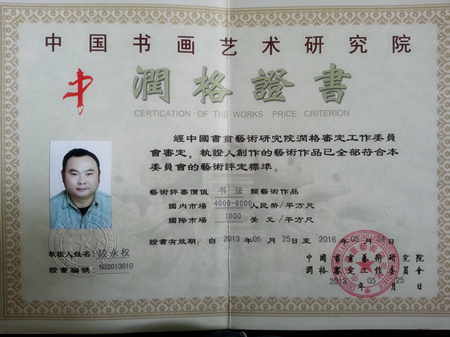 中国书画艺术研究院
潤格證書
CERTICATION OF THE WORKS PRICE CRITERION
經中國書畫藝術研究院潤格審定工作委員
會審定，執證人創作的藝術作品已全部符合本
委員會的藝術評定標準。
藝術評審價值 书法 類藝術作品
國内市場 4000-6000 人民幣/平方尺
國際市場 1000 美元/平方尺
證書有效期：自 2013 年 05 月 25 日至 2016 年 05 月 日
執證人姓名： 永权
證書編號： 802013010
中國書畫藝術研究院
潤格審定工作委員會
2013 年 05 月 25 日